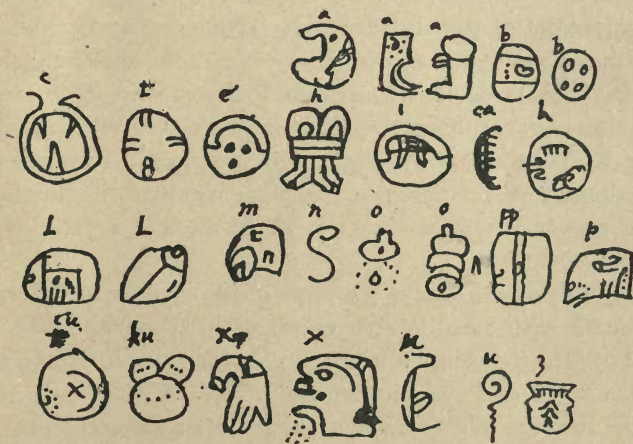 a a a b b
c t e h i ca k
L L m n o o pp p
cu ku x x u u z